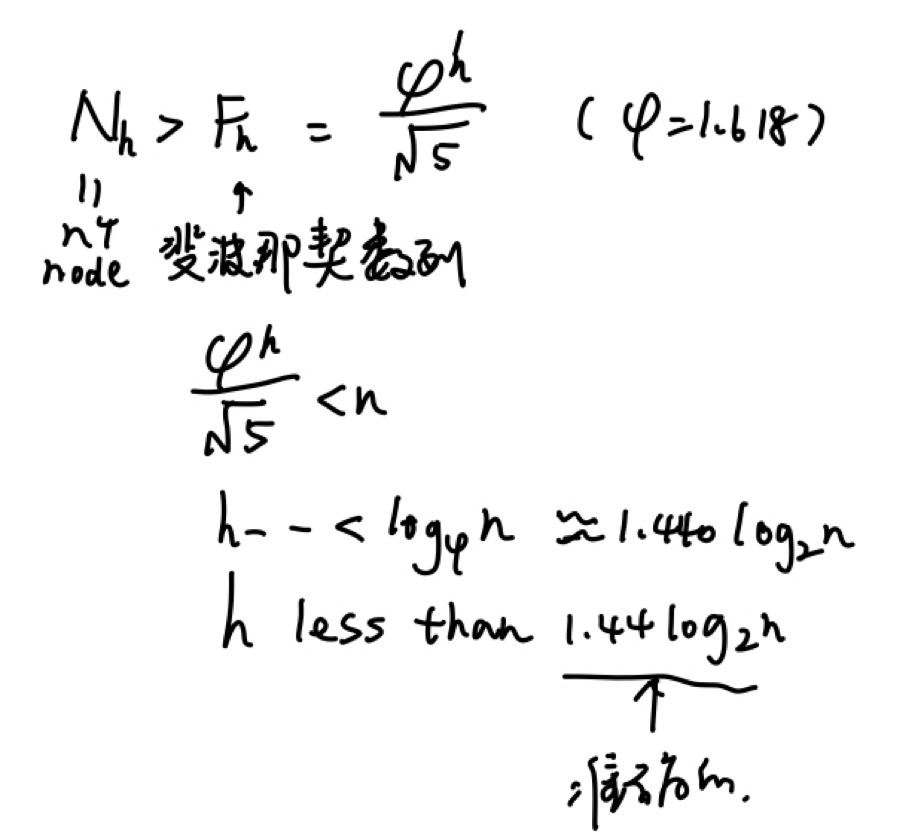 N_h > F_h = φ^h / √5 (φ=1.618)
|| ↑
n个
node 斐波那契数列
φ^h / √5 < n
h-- < log_φ n ≈ 1.440 log_2 n
h less than 1.44 log_2 n
↑
准确的